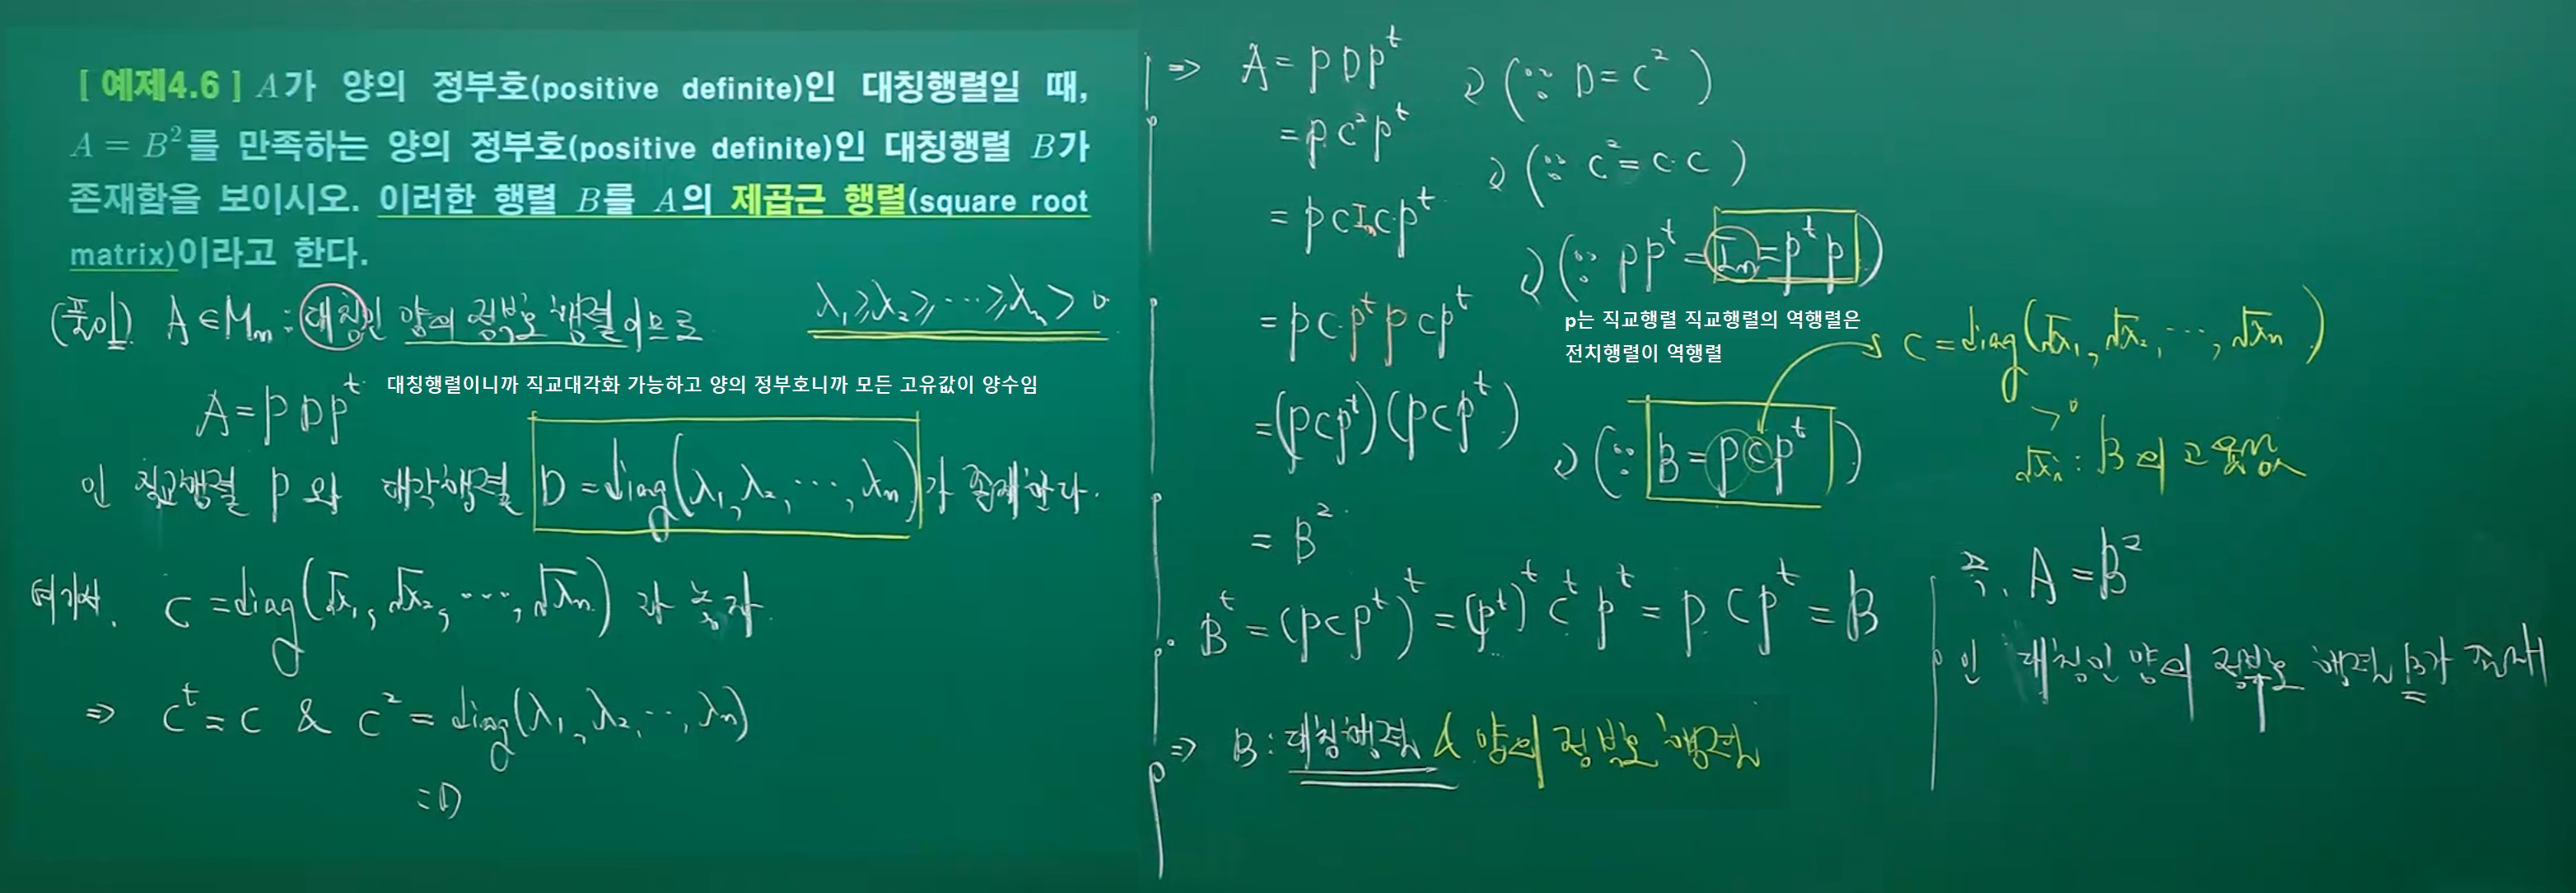 [ 예제4.6 ] A가 양의 정부호(positive definite)인 대칭행렬일 때,
A = B²를 만족하는 양의 정부호(positive definite)인 대칭행렬 B가
존재함을 보이시오. 이러한 행렬 B를 A의 제곱근 행렬(square root
matrix)이라고 한다.
(풀이) A ∈ Mₙ : 대칭인 양의 정부호 행렬이므로
λ₁ ≥ λ₂ ≥ ⋯ ≥ λₙ > 0
A = PDPᵗ
대칭행렬이니까 직교대각화 가능하고 양의 정부호니까 모든 고유값이 양수임
인 직교행렬 P와 대각행렬 D = diag(λ₁, λ₂, ⋯, λₙ)가 존재한다.
여기서. C = diag(√λ₁, √λ₂, ⋯, √λₙ) 라 놓자.
⇒ Cᵗ = C & C² = diag(λ₁, λ₂, ⋯, λₙ)
= D
⇒ A = PDPᵗ
(∵ D = C²)
= PC²Pᵗ
(∵ C² = C·C)
= PCIₙCPᵗ
(∵ PPᵗ = Iₙ = PᵗP)
p는 직교행렬 직교행렬의 역행렬은
전치행렬이 역행렬
= PC·PᵗPCPᵗ
= (PCPᵗ)(PCPᵗ)
(∵ B = PCPᵗ)
= B²
C = diag(√λ₁, √λ₂, ⋯, √λₙ)
> 0
√λᵢ : B의 고윳값
Bᵗ = (PCPᵗ)ᵗ = (Pᵗ)ᵗCᵗPᵗ = PCPᵗ = B
⇒ B : 대칭행렬 & 양의 정부호 행렬
즉, A = B²
인 대칭인 양의 정부호 행렬 B가 존재